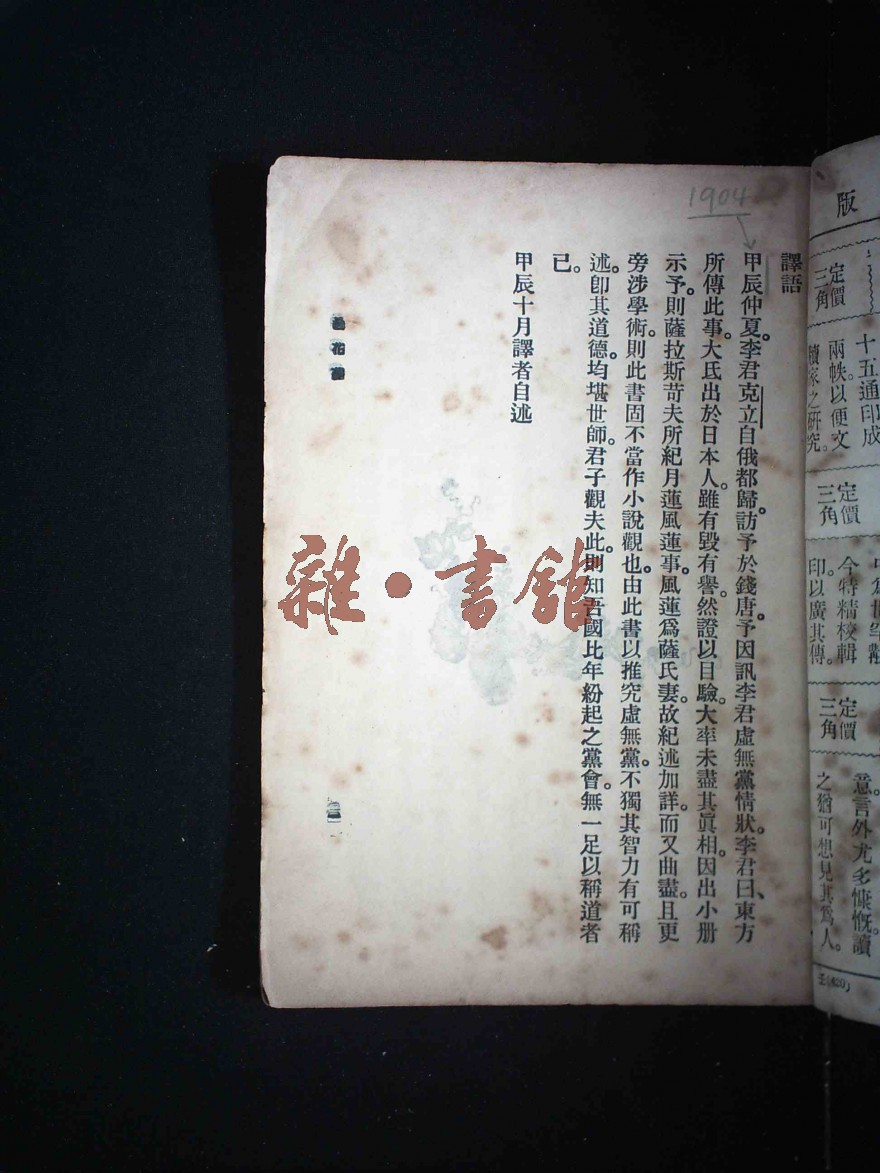 版
定價
三角
十五通印成
兩帙以便文
牘家之研究。
定價
三角
今特精校輯
印以廣其傳。
定價
三角
意言外尤多慷慨讀
之猶可想見其為人。
1904
譯語
甲辰仲夏。李君克立自俄都歸。訪予於錢唐。予因訊李君虛無黨情狀。李君曰、東方
所傳此事。大氐出於日本人。雖有毀有譽。然證以目驗。大率未盡其眞相。因出小册
示予。則薩拉斯苛夫所紀月蓮風蓮事。風蓮爲薩氏妻。故紀述加詳。而又曲盡。且更
旁涉學術。則此書固不當作小說觀也。由此書以推究虛無黨。不獨其智力有可稱
述。卽其道德。均堪世師。君子觀夫此。則知吾國比年紛起之黨會。無一足以稱道者
已。
甲辰十月譯者自述
花
雜·書館